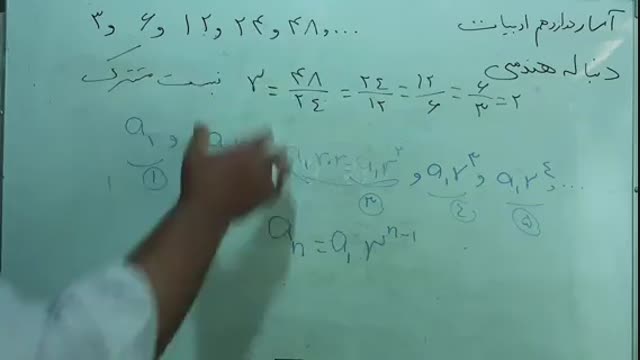 آمار دوازدهم ادبیات
۳ و ۶ و ۱۲ و ۲۴ و ۴۸ و ...
دنباله هندسی
نسبت مشترک r = ۴۸/۲۴ = ۲۴/۱۲ = ۱۲/۶ = ۶/۳ = ۲
a₁ و a₁r·r = a₁r² و a₁r³ و a₁r⁴ و ...
① ③ ④ ⑤
aₙ = a₁ rⁿ⁻¹